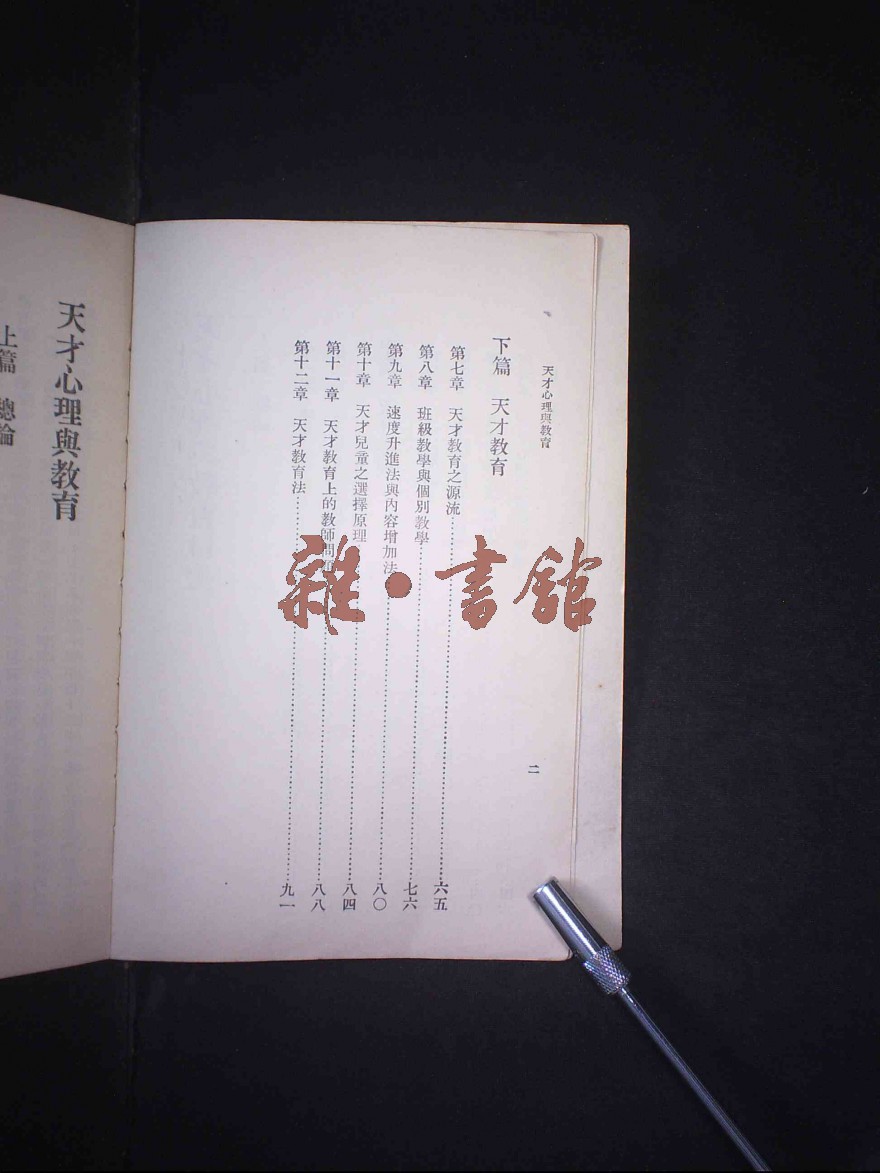 天才心理與教育
二
下篇　天才教育
第七章　天才教育之源流……六五
第八章　班級教學與個別教學……七六
第九章　速度升進法與內容增加法……八〇
第十章　天才兒童之選擇原理……八四
第十一章　天才教育上的教師問題……八八
第十二章　天才教育法……九一
天才心理與教育
上篇　總論
雜·書館